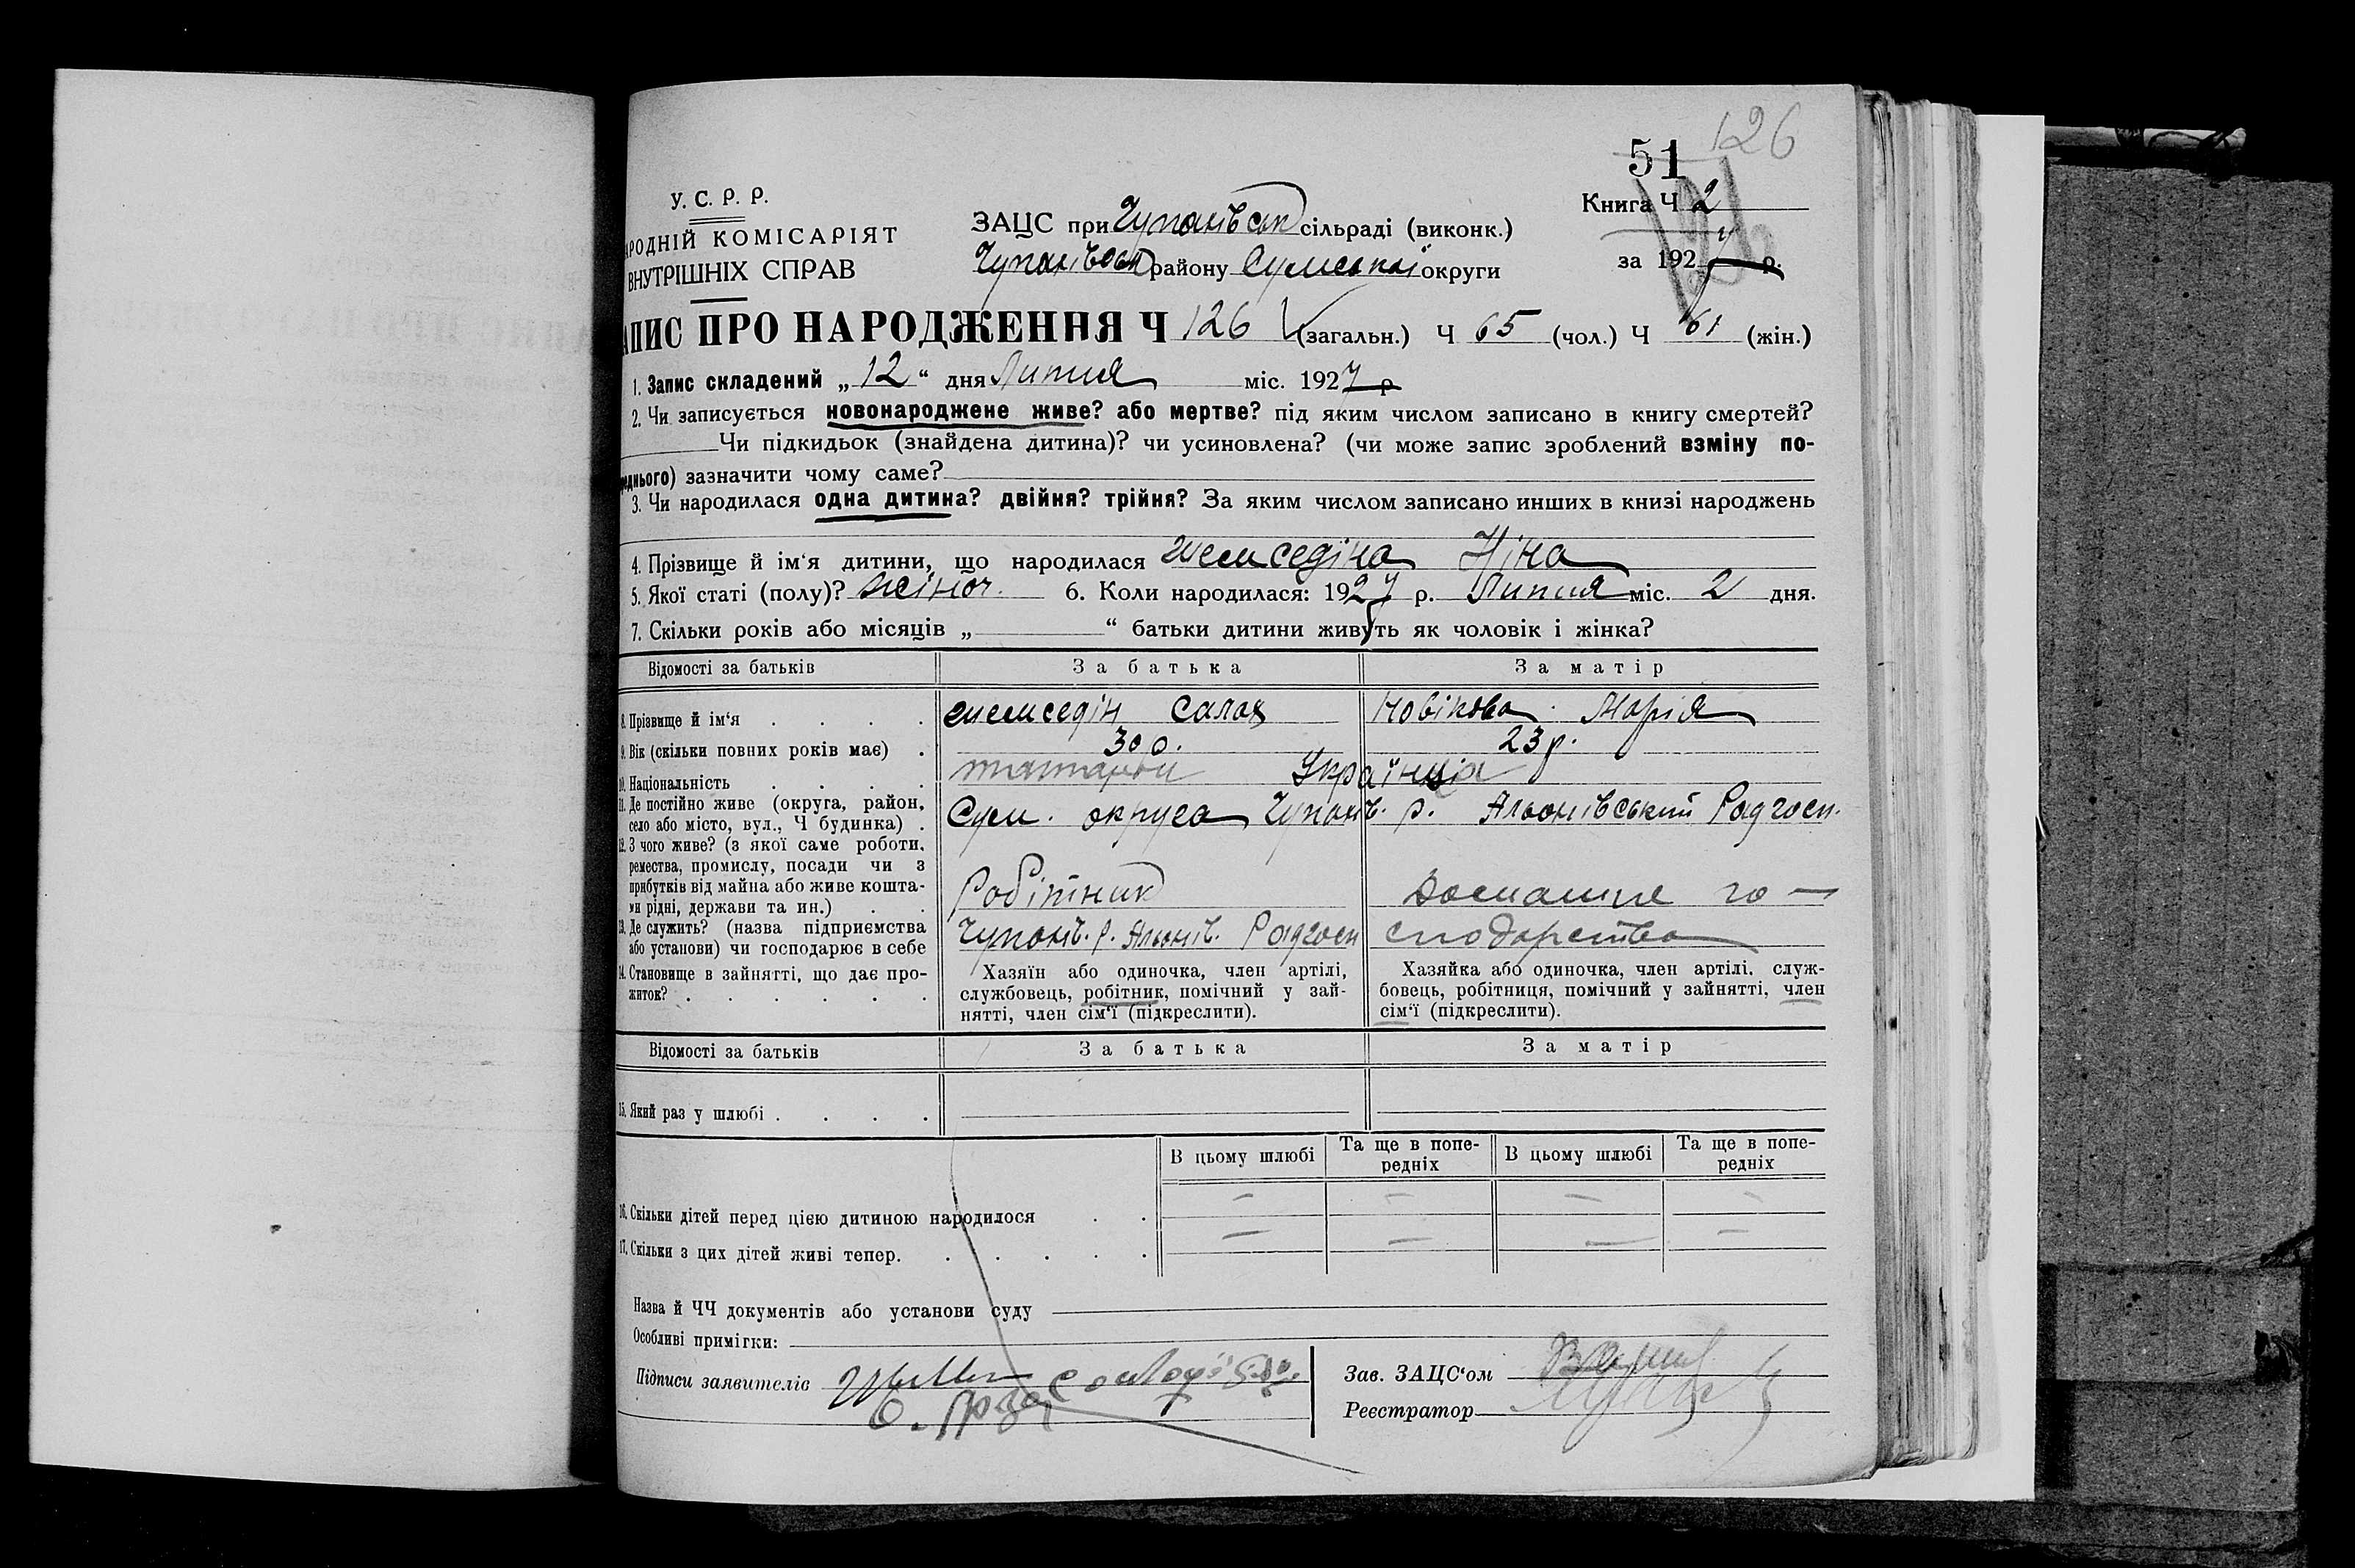 126
51
У. С. Р. Р.
Книга Ч 2
АРОДНІЙ КОМІСАРІЯТ
ЗАЦС при Чупахівськ сільраді (виконк.)
ВНУТРІШНІХ СПРАВ
Чупахівськ району Сумської округи
за 1927 р.
АПИС ПРО НАРОДЖЕННЯ Ч 126 (загальн.) Ч 65 (чол.) Ч 61 (жін.)
1. Запис складений „12“ дня Липня міс. 1927 р
2. Чи записується новонароджене живе? або мертве? під яким числом записано в книгу смертей?
Чи підкидьок (знайдена дитина)? чи усиновлена? (чи може запис зроблений взміну по-
реднього) зазначити чому саме?
3. Чи народилася одна дитина? двійня? трійня? За яким числом записано инших в книзі народжень
4. Прізвище й ім‘я дитини, що народилася Шемседіна Ніна
5. Якої статі (полу)? жіноч. 6. Коли народилася: 1927 р. Липня міс. 2 дня.
7. Скільки років або місяців „ “ батьки дитини живуть як чоловік і жінка?
Відомості за батьків За батька За матір
8. Прізвище й ім‘я Шемседін Салах Новікова Марія
9. Вік (скільки повних років має) 30 р. 23 р.
10. Національність татарин Українка
11. Де постійно живе (округа, район,
село або місто, вул., Ч будинка) Сум. округа Чупахів. р. Альонівський Радгосп.
12. З чого живе? (з якої саме роботи,
ремества, промислу, посади чи з
прибутків від майна або живе кошта-
ми рідні, держави та ин.) Робітник Домашнє го-
13. Де служить? (назва підприємства
або установи) чи господарює в себе Чупахів. р. Альонів. Радгосп сподарство
14. Становище в зайнятті, що дає про-
житок?
Хазяїн або одиночка, член артілі,
службовець, робітник, помічний у зай-
нятті, член сім‘ї (підкреслити).
Хазяйка або одиночка, член артілі, служ-
бовець, робітниця, помічний у зайнятті, член
сім‘ї (підкреслити).
Відомості за батьків За батька За матір
15. Який раз у шлюбі
В цьому шлюбі Та ще в попе-
редніх В цьому шлюбі Та ще в попе-
редніх
16. Скільки дітей перед цією дитиною народилося — — — —
17. Скільки з цих дітей живі тепер. — — — —
Назва й ЧЧ документів або установи суду
Особливі примітки:
Підписи заявителів
Зав. ЗАЦС‘ом
Реєстратор